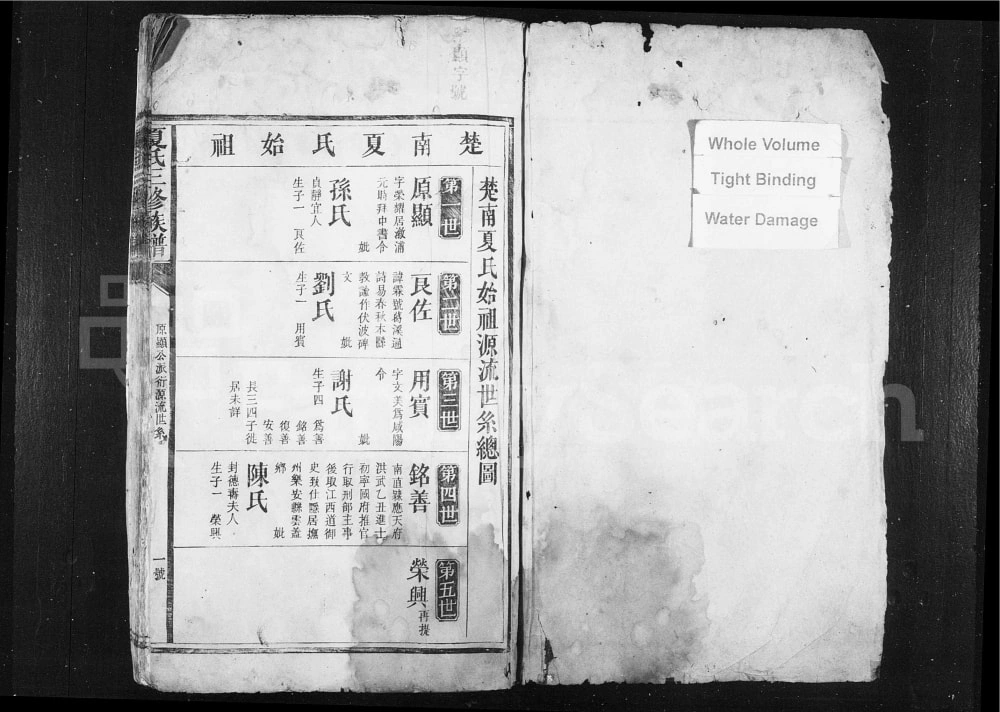 酉字號
楚南夏氏始祖
楚南夏氏始祖源流世系總圖
第一世
原顯
字榮耀居溆浦
元時拜中書令
妣
孫氏
貞靜宜人
生子一 良佐
第二世
良佐
諱霖號葛溪通
詩易春秋本縣
教諭作伏波碑
文 妣
劉氏
生子一 用賓
第三世
用賓
字文美為咸陽
令
妣
謝氏
生子四 為善
銘善
復善
安善
長三四子徙
居未詳
第四世
銘善
南直隸應天府
洪武乙丑進士
初寧國府推官
行取刑部主事
後取江西道御
史致仕隱居撫
州樂安縣雲蓋
鄉 妣
陳氏
封德壽夫人
生子一 榮興
第五世
榮興 再提
夏氏三修族譜
原顯公派衍源流世系
一號
Whole Volume
Tight Binding
Water Damage